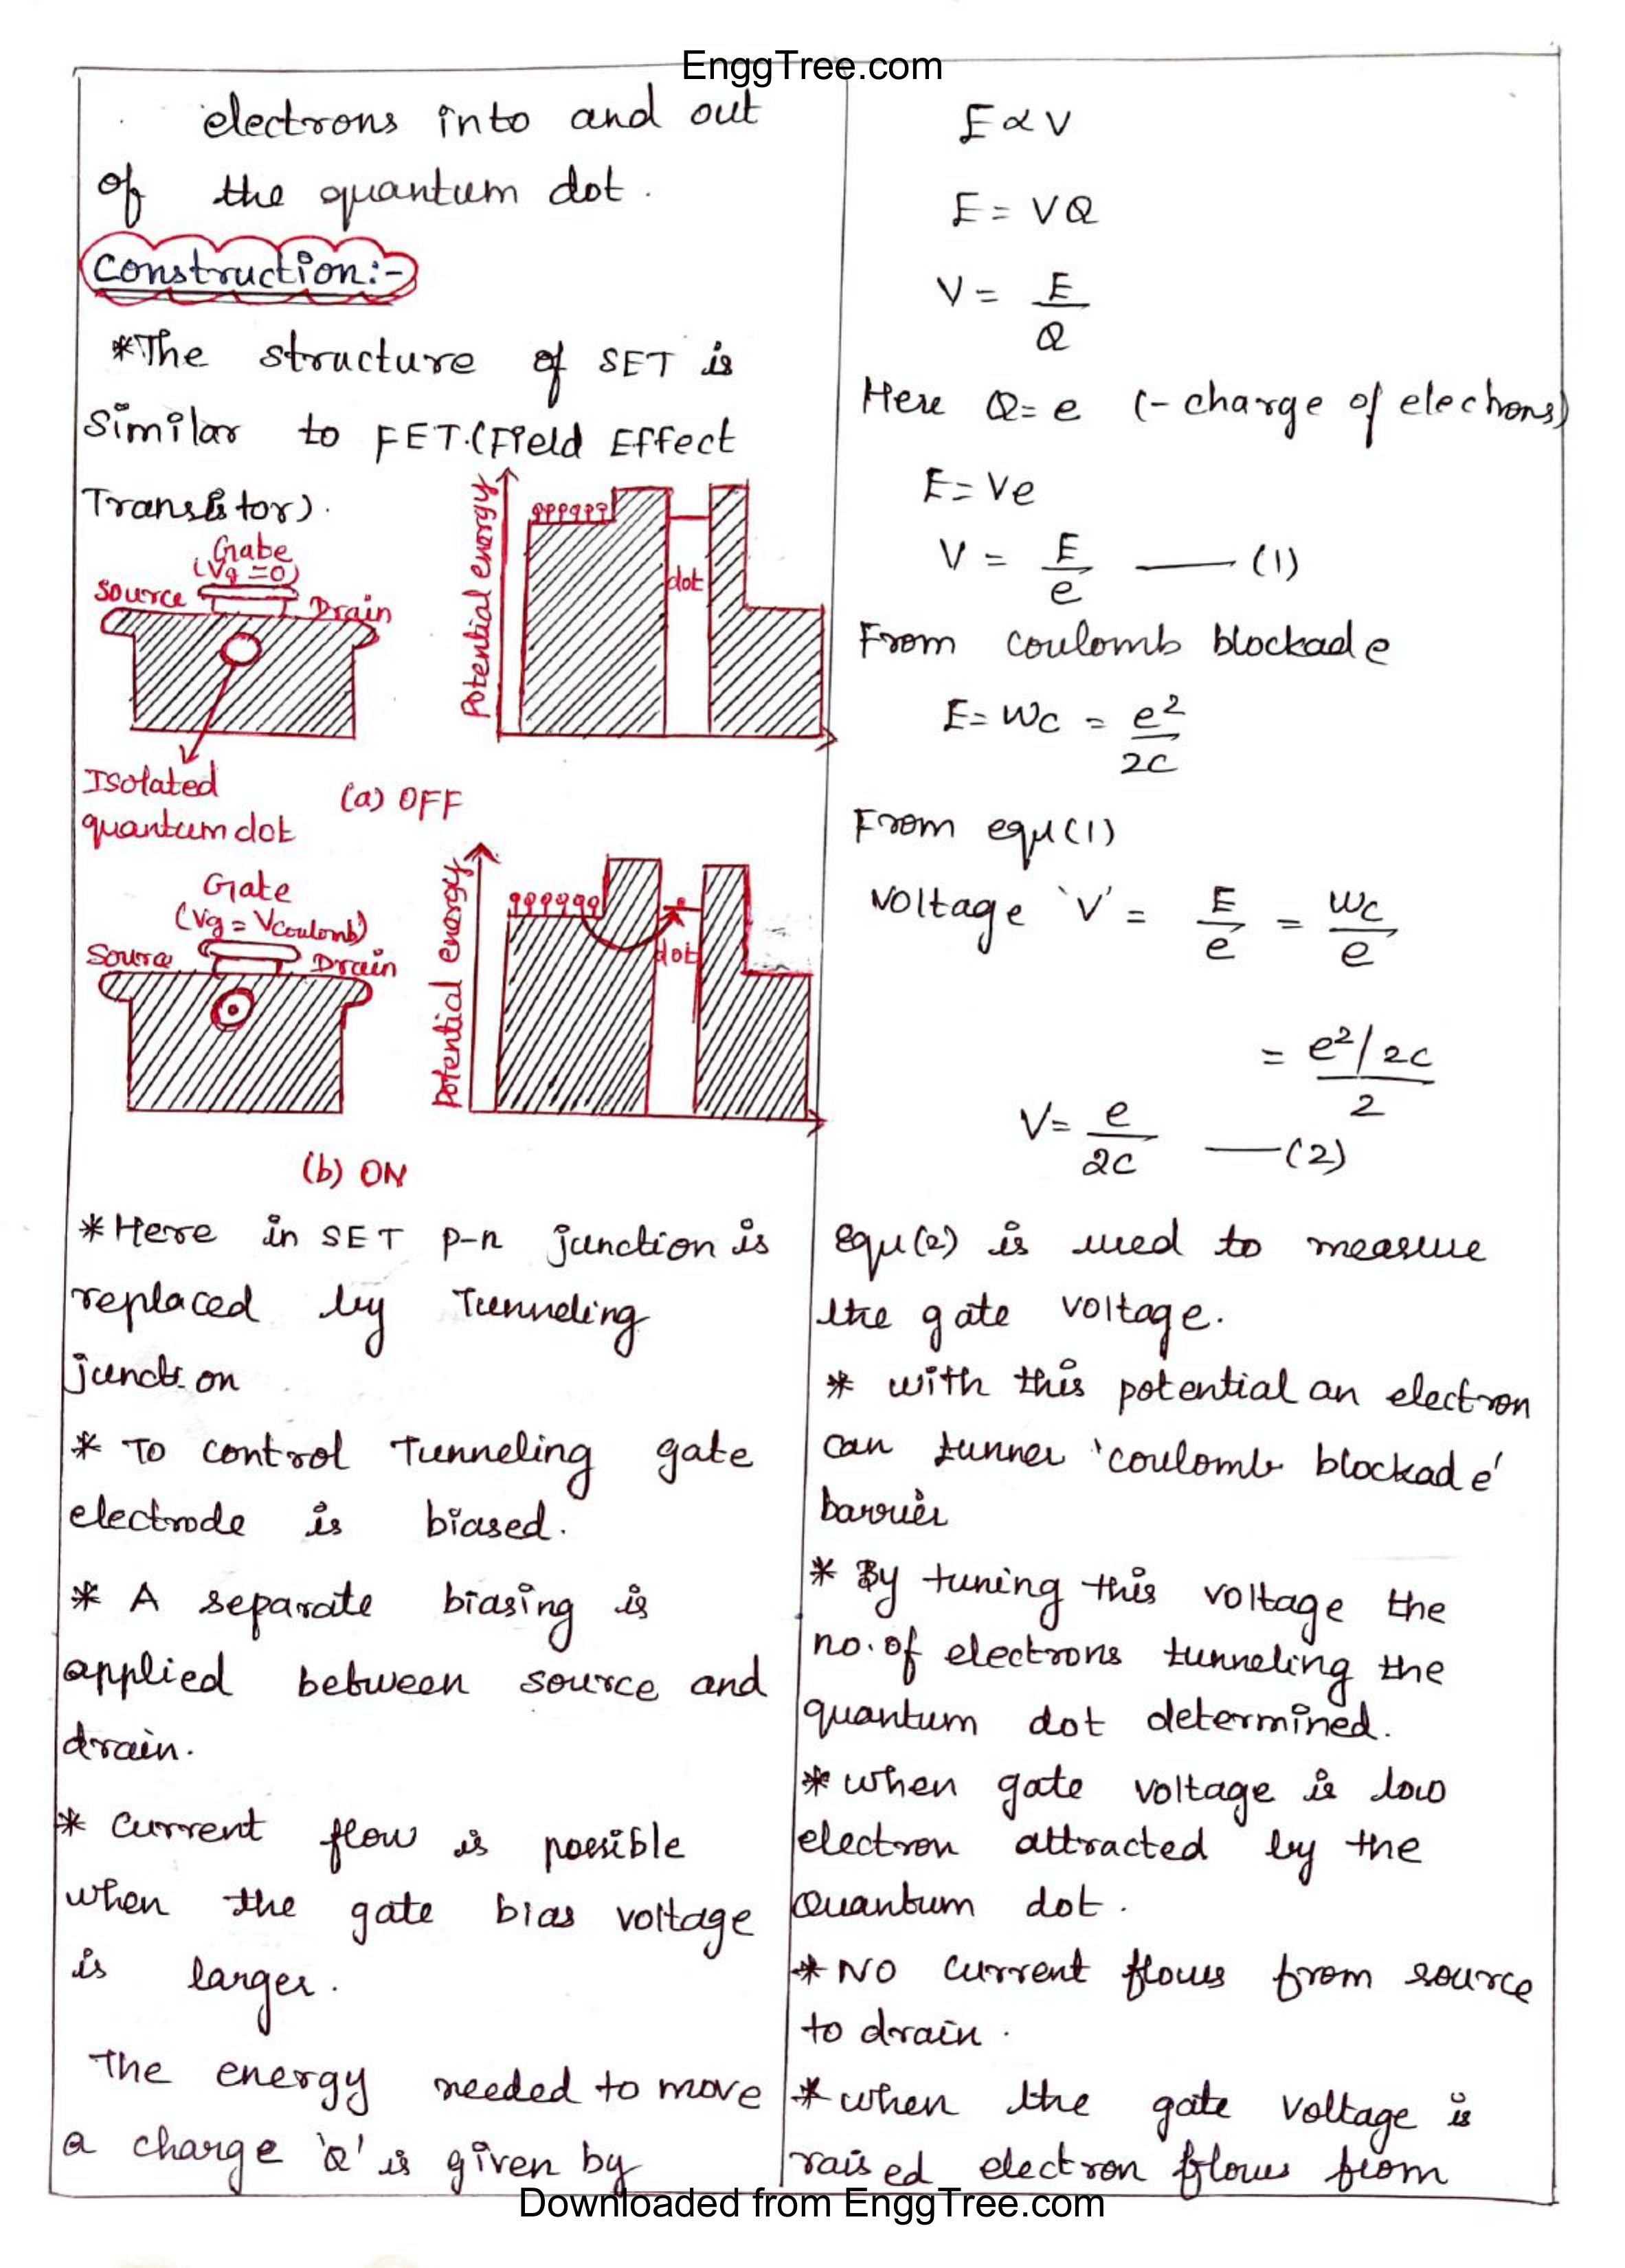 EnggTree.com
electrons into and out
of the quantum dot.
Construction:-
*The structure of SET is
Similar to FET.(Field Effect
Transistor).
Gabe
(Vg=0)
Source
Drain
Isolated
quantum dot
Potential energy
dot
(a) OFF
Gate
(Vg = Vcoulomb)
Source
Drain
Potential energy
dot
(b) ON
*Here in SET p-n junction is
replaced by Tunneling
junction
* To control Tunneling gate
electrode is biased.
* A separate biasing is
applied between source and
drain.
* Current flow is possible
when the gate bias voltage
is larger.
The energy needed to move
a charge 'Q' is given by
E ∝ V
E = VQ
V = E/Q
Here Q = e (- charge of electrons)
E = Ve
V = E/e —— (1)
From coulomb blockade
E = Wc = e²/2C
From equ (1)
Voltage 'V' = E/e = Wc/e
= e²/2C / 2
V = e/2C —— (2)
equ (2) is used to measure
the gate voltage.
* with this potential an electron
can tunner 'coulomb blockade'
barrier
* By tuning this voltage the
no. of electrons tunneling the
quantum dot determined.
* when gate voltage is low
electron attracted by the
Quantum dot.
* NO current flows from source
to drain.
* when the gate voltage is
raised electron flows from
Downloaded from EnggTree.com